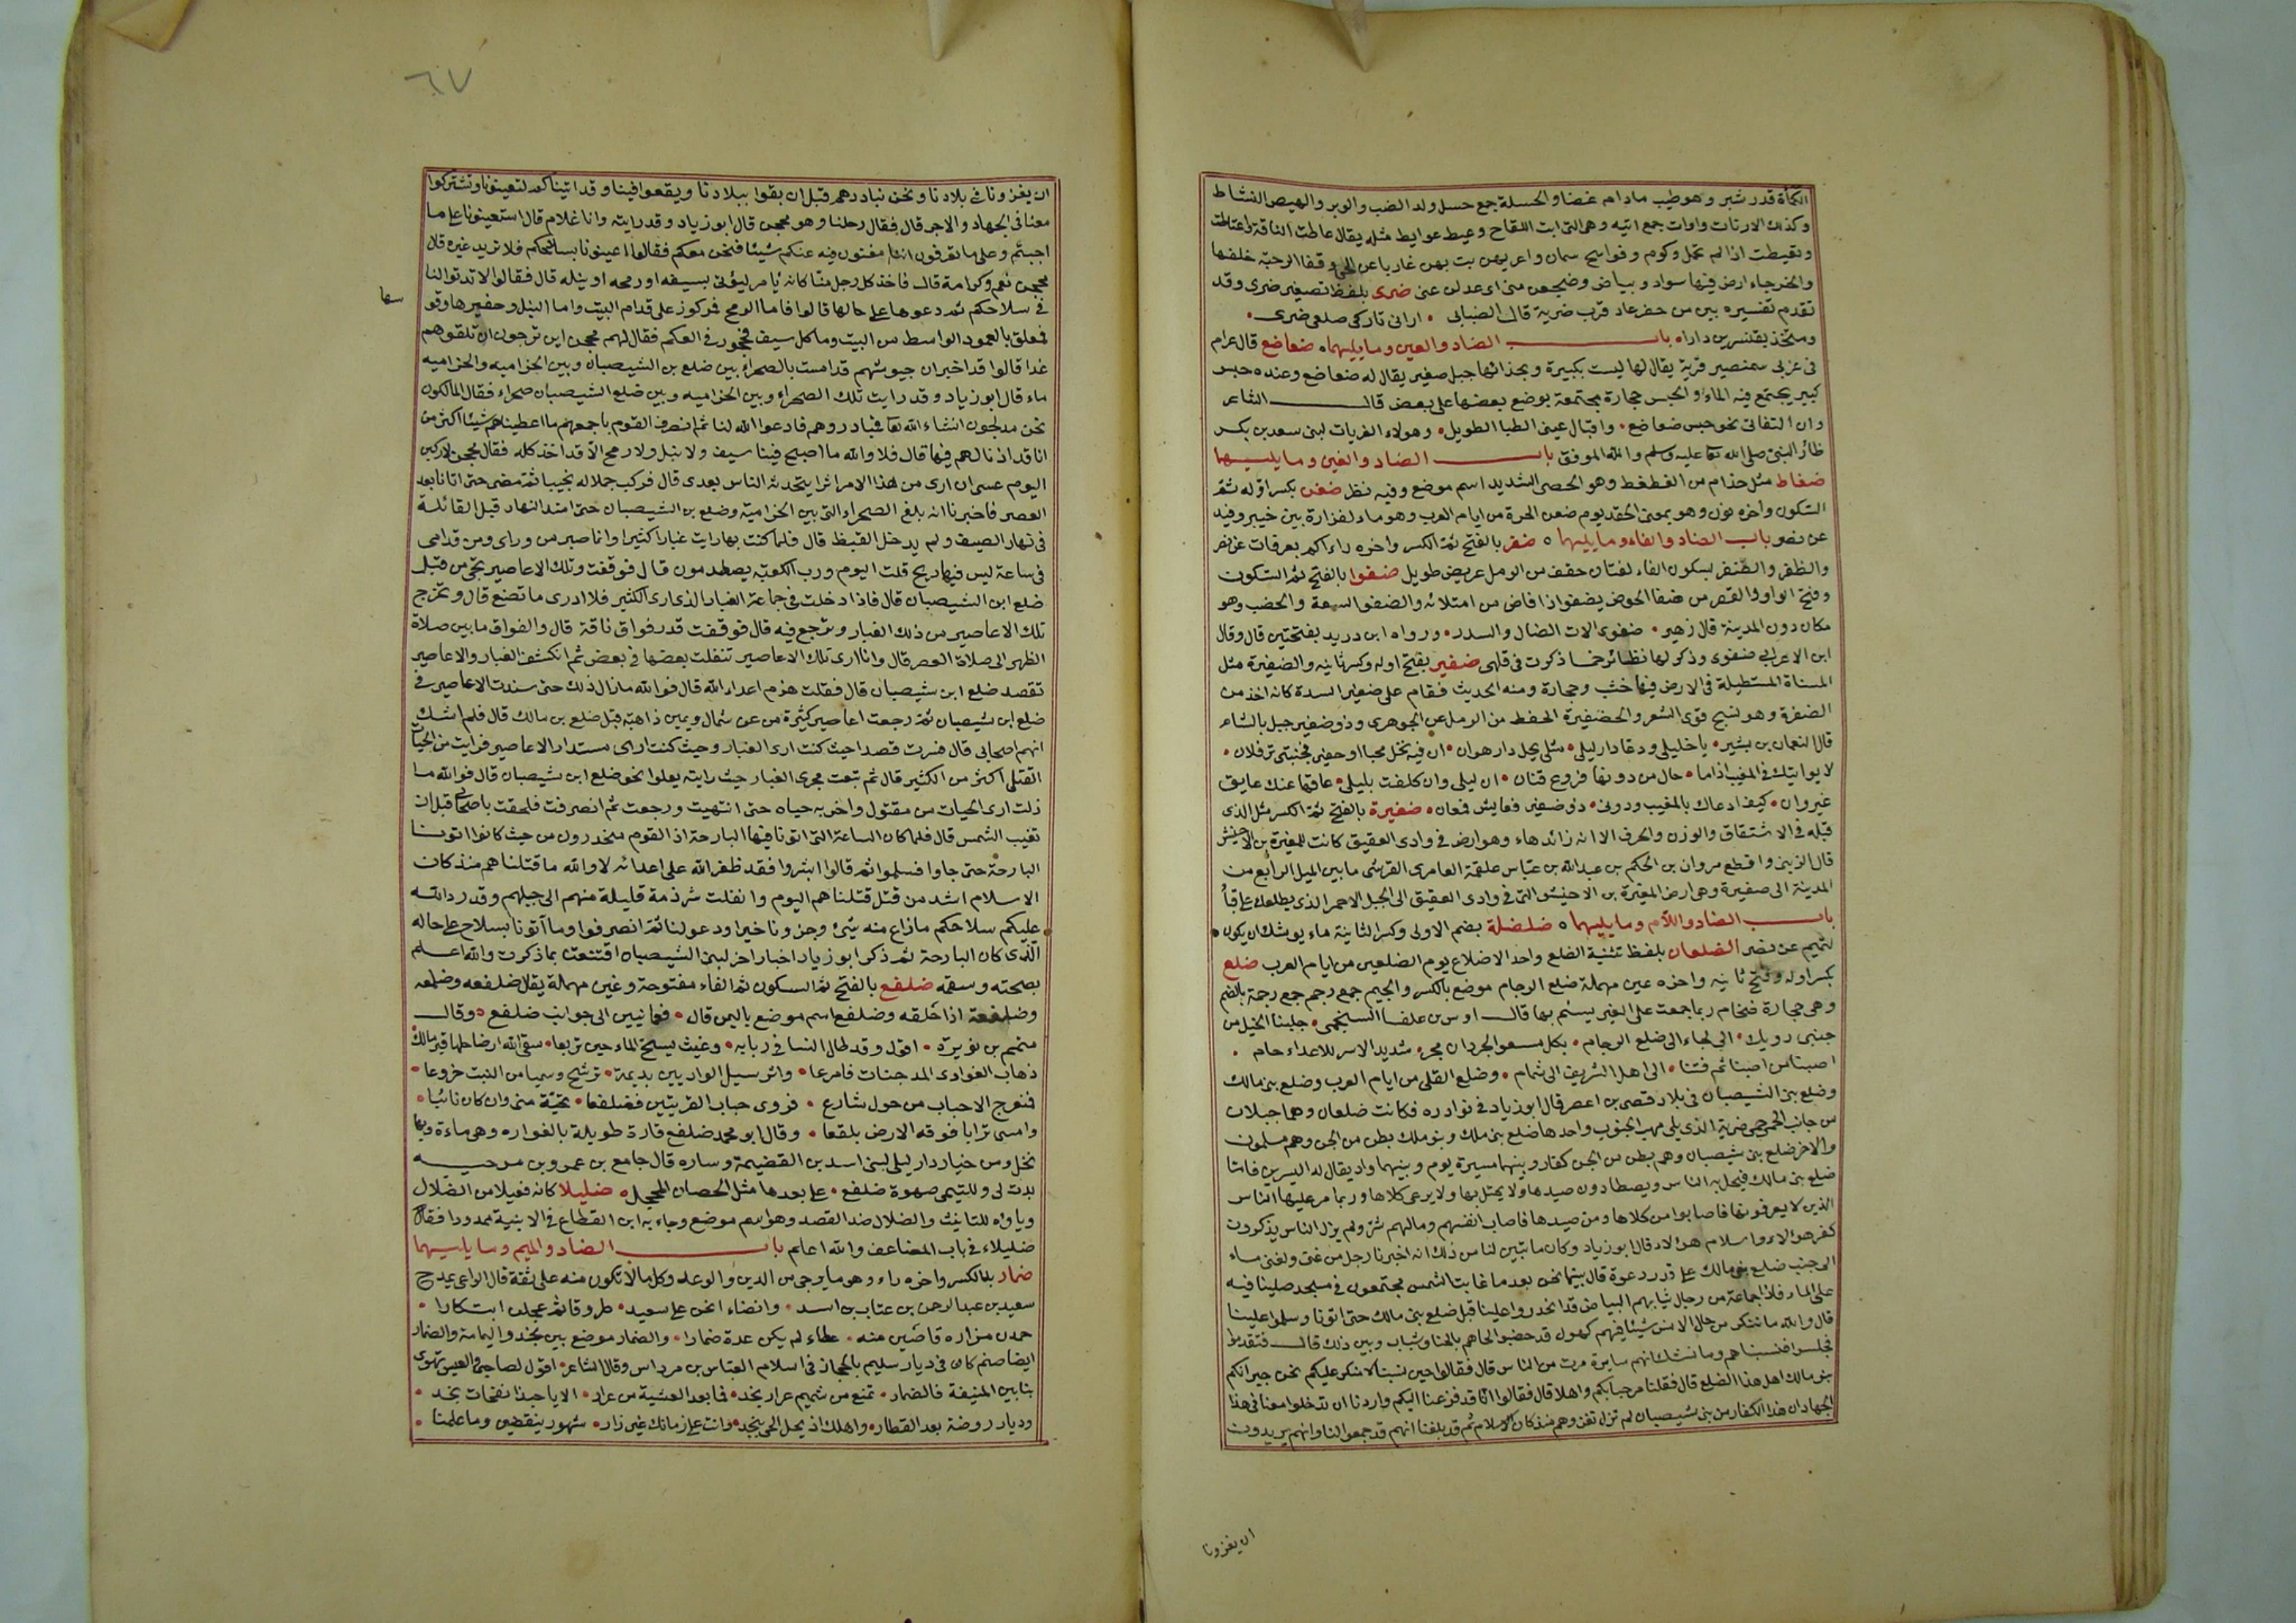 الكمأة قدر شبر وهو طيب مادام غضا والحسلة جمع حسل ولد الضب والوبر والهيص النشاط
وكذلك الارتات واوات جمع اتيه وهى التى ابت اللقاح وعيط عوايط مثله يقال عاطت الناقة واعتاطت
وتعيطت اذا لم تحمل وكوم وفواسيح سمان واعر يهن بت بهن غاربا عن الحى وقفا الرحبة خلفها
والخرجاء ارض فيها سواد وبياض وضجيعى منى اى عدلن عنى ضرى بلفظ تصغير ضرى وقد
تقدم تفسيره بين من حفر عاد قرب ضرية قال الضبابى • ارانى تاركى ضلعى ضرى •
ومتخذ بقنسرين دارا • باب الضاد والعين وما يليهما ٥ ضعاضع قال عرام
فى غربى شمنصير قرية يقال لها ليست بكبيرة وبحذائها جبل صغير يقال له ضعاضع وعنده حبس
كبير يجتمع فيه الماء والحبس حجارة مجتمعة يوضع بعضها على بعض قال الشاعر
وان التفاتى نحو حبس ضعاضع • واقبال عينى الظبا الطويل • وهولاء القريات لبنى سعد بن بكر
ظائر النبى صلى الله تعا عليه وسلم والله الموفق باب الضاد والغين وما يليهما
ضغاط مثل حذام من الضغط وهو الحصى الشديد اسم موضع وفيه نظر ضغن بكسر اوله ثم
السكون واخره نون وهو بمعنى الحقد يوم ضغن الحرة من ايام العرب وهو ماء لفزارة بين خيبر وفيد
عن نصر باب الضاد والفاء وما يليهما ٥ ضفر بالفتح ثم الكسر واخره راء اكم بعرفات عن نصر
والظفر والضفر بسكون الفاء لغتان حقف من الرمل عريض طويل ضفوا بالفتح ثم السكون
وفتح الواو والقصر من ضفا الحوض يضفو اذا فاض من امتلائه والضفو السعة والخصب وهو
مكان دون المدينة قال زهير • ضفوى الات الضال والسدر • ورواه ابن دريد بفتحتين قال وقال
ابن الاعرابى ضفوى وذكر لها نظائر خما ذكرت فى قلهى ضفير بفتح اوله وكسر ثانيه والضفيرة مثل
المسناة المستطيلة فى الارض فيها خشب وحجارة ومنه الحديث فقام على ضفير السدة كانه اخذ من
الضفرة وهو نسيج قوى الشعر والضفيرة الحفظ من الرمل عن الجوهرى وذو ضفير جبل بالشام
قال النعمان بن بشير • يا خليلى ودعا دار ليلى • مثلى يحل دار هوان • ان فيه نخل محبا او حفيى فجنبتى ترفلان •
لا يواتيك فى المغيب اذا ما • حال من دونها فروع قنان • ان ليلى وان كلفت بليلى • عاقها عنك عايق
غير وان • كيف ادعاك بالمغيب ودونى • ذى ضفير فعايش فعان • ضفيرة بالفتح ثم الكسر مثل الذى
قبله فى الاشتقاق والوزن والحرف الا انه زائد هاء وهو ارض فى وادى العقيق كانت للمغيرة بن الاخنش
قال الزبير واقطع مروان بن الحكم بن عبد الله بن عباس علقمة العامرى القرشى ما بين الميل الرابع من
المدينة الى ضفيرة وهى ارض المغيرة بن الاخنش التى فى وادى العقيق الى الجبل الاحمر الذى يطلعك على قبا
باب الضاد واللام وما يليهما ٥ ضلضلة بضم الاولى وكسر الثانية ماء يوشك ان يكون
لتميم عن نصر الضلعان بلفظ تثنية الضلع واحد الاضلاع يوم الضلعين من ايام العرب ضلع
بكسر اوله وفتح ثانيه واخره عين مهملة ضلع الرجام موضع بالكسر والجيم جمع رجم جمع رجمة بالضم
وهى حجارة ضخام ربما جمعت على القبر يسنم بها قال اوس بن علفا الهجيمى • جلبنا الخيل من
جنبى رويك • الى لجاء الى ضلع الرجام • بكل منعو الجردان مجر • شديد الاسر للاعداء حام •
اصبنا من اصبنا ثم فئنا • الى اهل الشريف الى شمام • وضلع القتلى من ايام العرب وضلع بنى مالك
وضلع بنى الشيصبان فى بلاد غنى بن اعصر قال ابو زياد فى نوادره فكانت ضلعان وهما جبلان
من جانب الحمى حمى ضرية الذى يلى مهب الجنوب واحدها ضلع بنى ملك وبنو ملك بطن من الجن وهم مسلمون
والاخر ضلع بنى شيصبان وهم بطن من الجن كفار وبينهما مسيرة يوم وبينهما واد يقال له اليسرين فاما
ضلع بنى مالك فيحل به الناس ويصطادون صيدها ولا يحتل بها ولا يرعى كلاها وربما مر عليها الناس
الذين لا يعرفونها فاصابوا من كلاها ومن صيدها فاصاب انفسهم ومالهم شر ولم يزل الناس يذكرون
كفر هؤلاء واسلام هؤلاء قال ابو زياد وكان ما تبين لنا من ذلك انه اخبرنا رجل من غنى ولغنى ماء
الى جنب ضلع بنى مالك على قدر دعوة قال بينما نحن بعد ما غابت الشمس مجتمعون فى مسجد صلينا فيه
على الماء فاذا جماعة من رجال ثيابهم البياض قد انحدروا علينا قبل ضلع بنى مالك حتى اتونا وسلموا علينا
قال والله ما ننكر من حال الانس شيئا فيهم كهول قد خضبوا لحاهم بالحنا وشباب وبين ذلك قال فتقدموا
فجلسوا فنسبناهم وما نشك انهم سايرة مرت من الناس قال فقالوا حين نسبنا لا منكر عليكم نحن جيرانكم
بنو مالك اهل هذا الضلع قال فقلنا مرحبا بكم واهلا قال فقالوا انا قد فزعنا اليكم واردنا ان تدخلوا معنا فى هذا
الجهاد ان هذا الكفار من بنى شيصبان لم نزل نغزوهم منذ كان الاسلام ثم قد بلغنا انهم قد جمعوا لنا وانهم يريدون
ان يغزونا
٦٧
ان يغزونا فى بلادنا ونحن نبادرهم قبل ان يقعوا ببلادنا ويقعوا فينا وقد اتيناكم لتعينونا وتشتركوا
معنا فى الجهاد والاجر قال فقال رجلنا وهو محجن قال ابو زياد وقد رايته وانا غلام قال استعينونا على ما
اجبتم وعلى ما تعرفون اننا مغنون فيه عنكم شيئا فنحن معكم فقالوا اعينونا بسلاحكم فلا نريد غيره قال
محجن نعم وكرامة قال فاخذ كل رجل منا كانه يامر ليؤتى بسيفه او رمحه او نبله قال فقالوا الا تدنوا لنا
فى سلاحكم ثم دعوها على حالها قالوا فاما الرمح فمركوز على قدام البيت واما النبل وجفيرها وقو
فمعلق بالعمود الواسط من البيت وما كل سيف فمحجور فى العكم فقال لهم محجن اين ترجون ان تلقوهم
غدا قالوا قد اخبر ان جيوشهم قد امست بالصحراء بين ضلع بن الشيصبان وبين الخراميه والخراميه
ماء قال ابو زياد وقد رايت تلك الصحراء وبين الخراميه وبين ضلع الشيصبان صحراء فقال المالكيون
نحن مدلجون انشاء الله تعا فنبادروهم فادعوا الله لنا ثم انصرف القوم باجمعهم ما اعطيناهم شيئا اكثر من
انا قد اذنا لهم فيها قال فلا والله ما اصبح فينا سيف ولا نبل ولا رمح الا قد اخذ كله فقال محجن لاركبن
اليوم عسى ان ارى من هذا الامر اثرا يتحدثه الناس بعدى قال فركب جملا له نجيبا ثم مضى حتى اتانا بعد
العصر فاخبرنا انه بلغ الصحراء التى بين الخرامية وضلع بن الشيصبان حتى امتد النهار قبل القائلة
فى نهار الصيف ولم يدخل القيظ قال فلما كنت بها رايت غبارا كثيرا واعاصير من وراى ومن قدامى
فى ساعة ليس فيها ريح قلت اليوم ورب الكعبه يصطدمون قال فوقفت وتلك الاعاصير تجى من قبل
ضلع ابن الشيصبان قال فاذا دخلت فى جماعة الغبار الذى ارى الكثير فلا ادرى ما تصنع قال وتخرج
تلك الاعاصير من ذلك الغبار وترجع فيه قال فوقفت قدر فواق ناقة قال والفواق ما بين صلاة
الظهر الى صلاة العصر قال وانا ارى تلك الاعاصير تنقلب بعضها فى بعض ثم انكشف الغبار والاعاصير
تقصد ضلع ابن شيصبان قال فقلت هزم اعداء الله قال فوالله مازال ذلك حتى سندت الاعاصير فى
ضلع ابن شيصبان ثم رجعت اعاصير كثيرة من عن شمال ويمين ذاهبة قبل ضلع بن مالك قال فلم اشك
انهم اصحابى قال فسرت قصدا حيث كنت ارى الغبار وحيث كنت ارى مستدار الاعاصير فرايت من الحيات
القتلى اكثر من الكثير قال ثم تبعت مجرى الغبار حيث رايته يعلوا نحو ضلع ابن شيصبان قال فوالله ما
زلت ارى الحيات من مقتول واخر به حياه حتى انتهيت ورجعت ثم انصرفت فلحقت باصحابى قبل ان
تغيب الشمس قال فلما كان الساعة التى اتونا فيها البارحة اذا القوم منحدرون من حيث كانوا اتونا
البارحة حتى جاوا فسلموا ثم قالوا ابشروا فقد ظفر الله على اعدائه لا والله ما قتلناهم منذ كان
الاسلام اشد من قتل قتلناهم اليوم وانفلت شرذمة قليلة منهم الى جبلهم وقد رد الله
عليكم سلاحكم ما زاغ منه شئ وجزونا خيرا ودعو لنا ثم انصرفوا وما آتونا بسلاح على حاله
الذى كان البارحة ثم ذكر ابو زياد اخبار اخر لبنى الشيصبان اقتنعت بما ذكرت والله اعلم
بصحته وسقمه ضلفع بالفتح ثم السكون ثم الفاء مفتوحة وعين مهملة يقال ضلفعه وضلمعه
وضلفعة اذا حلقه وضلفع اسم موضع باليمن قال • فعمايتين الى جوانب ضلفع • وقال
متمم بن نويرة • اقول وقد طال السنا فى ربابه • وغيث يسح الماء حين تربعا • سقى الله ارضا حلها قبر مالك
ذهاب الغوادى المدجنات فامرعا • واثر سيل الواديين بديمة • ترشح وسميا من النبت خروعا •
فنعرج الاحباب من حول شارع • فروى حباب القريتين فضلفعا • تحيته منى وان كان نائيا •
وامسى ترابا فوقه الارض بلقعا • وقال ابو محمد ضلفع قارة طويلة بالغواره وهى ماءة وبها
نخل ومن خيار دار ليلى لبنى اسد بن القضيمة وساره قال جامع بن عمرو بن مرحيه
بدت لى وللتيمى صهوة ضلفع • على بعدها مثل الحصان المحجل • ضليلا كانه فعيلا من الضلال
وياؤه للتانيث والضلال ضد القصد وهو اسم موضع وجاء به ابن القطاع فى الابنية ممدودا فقال
ضليلاء فى باب المضاعف والله اعلم باب الضاد والميم وما يليهما
ضمار بالكسر واخره راء وهو ما يرجى من الدين والوعد وكل مالا تكون منه على ثقة قال الراعى يمدح
سعيد بن عبد الرحمن بن عتاب بن اسد • وانضاء انخن على سعيد • طروقا ثم عجلن ابتكارا •
حمدن مزاره فاصبن منه • عطاء لم يكن عدة ضمارا • والضمار موضع بين نجد واليمامة والضمار
ايضا صنم كان فى ديار سليم بالحجاز فى اسلام العباس بن مرداس وقال الشاعر • اقول لصاحبى والعيس تهوى
بنا بين المنيفة فالضمار • تمتع من شميم عرار نجد • فما بعد العشية من عرار • الا يا حبذا نفحات نجد •
وديار روضة بعد القطار • واهلك اذ يحل الحى بنجد • وانت على زمانك غير زار • شهور ينقضين وما علمنا •